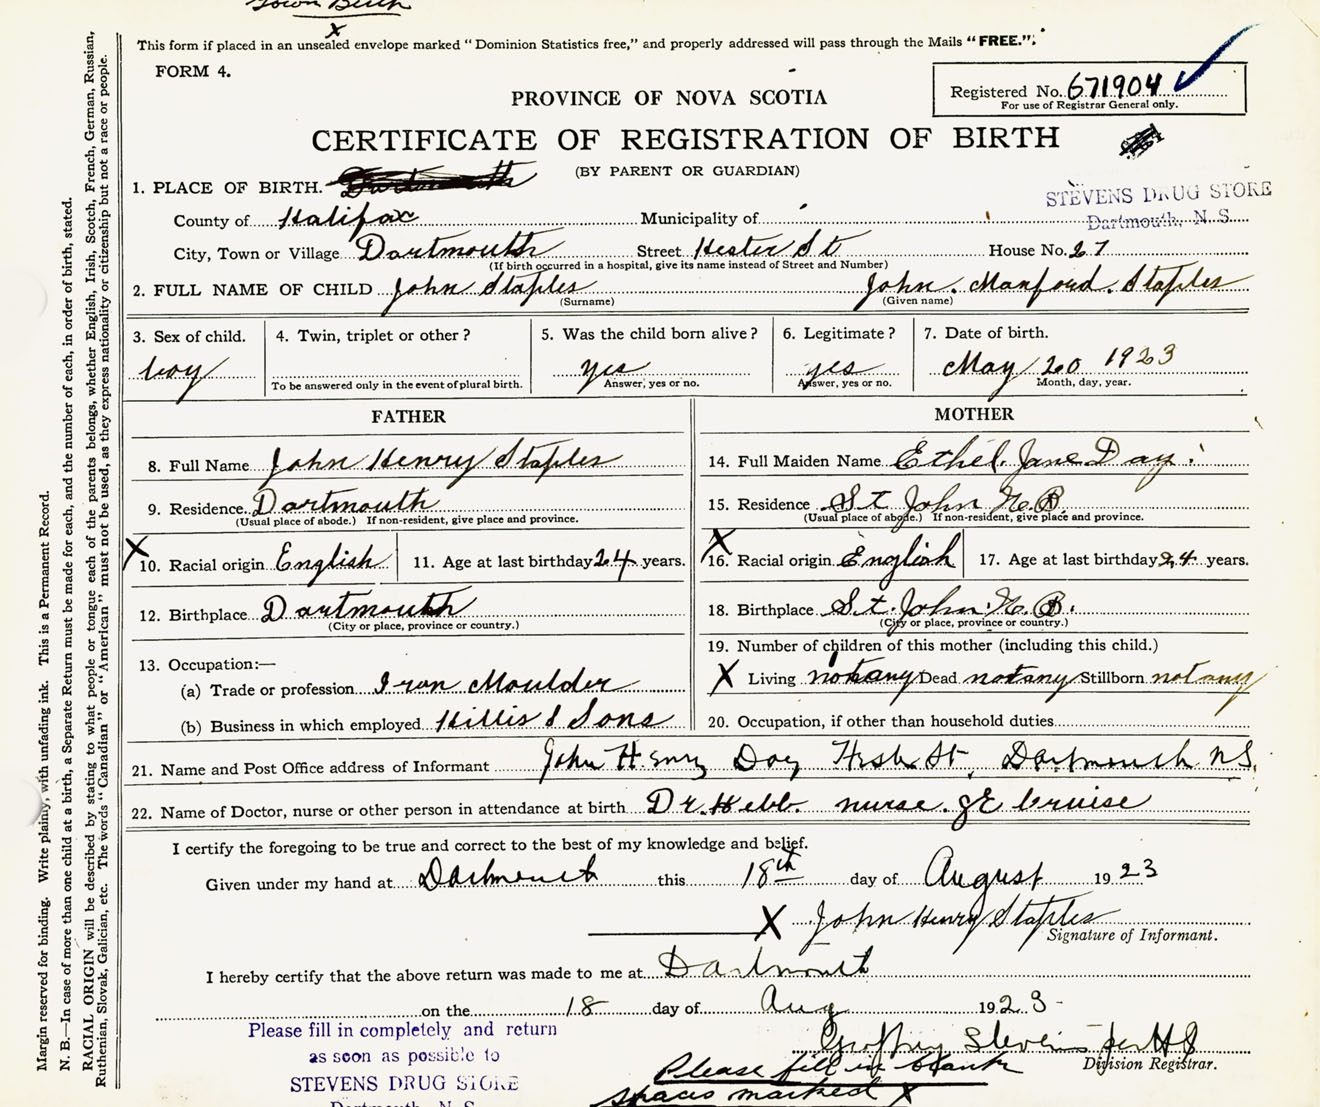 Town Birth
X
This form if placed in an unsealed envelope marked "Dominion Statistics free," and properly addressed will pass through the Mails "FREE."
FORM 4.
Registered No. 671904
For use of Registrar General only.
PROVINCE OF NOVA SCOTIA
CERTIFICATE OF REGISTRATION OF BIRTH
(BY PARENT OR GUARDIAN)
1. PLACE OF BIRTH. Dartmouth
STEVENS DRUG STORE
County of Halifax Municipality of Dartmouth, N. S.
City, Town or Village Dartmouth Street Hester St House No. 27
(If birth occurred in a hospital, give its name instead of Street and Number)
2. FULL NAME OF CHILD John Staples John. Manford. Staples
(Surname) (Given name)
3. Sex of child. 4. Twin, triplet or other? 5. Was the child born alive? 6. Legitimate? 7. Date of birth.
boy yes yes May 20 1923
To be answered only in the event of plural birth. Answer, yes or no. Answer, yes or no. Month, day, year.
FATHER MOTHER
8. Full Name John Henry Staples 14. Full Maiden Name Ethel. Jane Day
9. Residence Dartmouth 15. Residence St John N.B.
(Usual place of abode.) If non-resident, give place and province. (Usual place of abode.) If non-resident, give place and province.
X 10. Racial origin English 11. Age at last birthday 24 years. X 16. Racial origin English 17. Age at last birthday 24 years.
12. Birthplace Dartmouth 18. Birthplace St. John N.B.
(City or place, province or country.) (City or place, province or country.)
13. Occupation:— 19. Number of children of this mother (including this child.)
(a) Trade or profession Iron Moulder X Living notany Dead notany Stillborn notany
(b) Business in which employed Hillis & Sons 20. Occupation, if other than household duties
21. Name and Post Office address of Informant John Henry Day St, Dartmouth N.S.
22. Name of Doctor, nurse or other person in attendance at birth Dr. Hebb. nurse.
I certify the foregoing to be true and correct to the best of my knowledge and belief.
Given under my hand at Dartmouth this 18th day of August 1923
X John Henry Staples
Signature of Informant.
I hereby certify that the above return was made to me at Dartmouth
on the 18 day of Aug 1923
Please fill in completely and return
Stevens per
as soon as possible to
Division Registrar.
Please fill in blank
STEVENS DRUG STORE
spaces marked X
Dartmouth, N. S.
Margin reserved for binding. Write plainly, with unfading ink. This is a Permanent Record.
N. B.—In case of more than one child at a birth, a Separate Return must be made for each, and the number of each, in order of birth, stated.
RACIAL ORIGIN will be described by stating to what people or tongue each of the parents belongs, whether English, Irish, Scotch, French, German, Russian,
Ruthenian, Slovak, Galician, etc. The words "Canadian" or "American" must not be used, as they express nationality or citizenship but not a race or people.